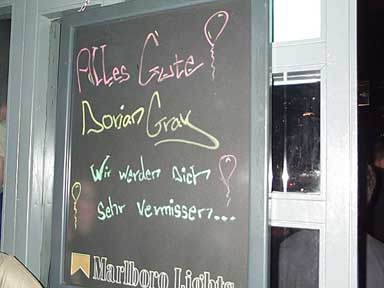 Alles Gute
Dorian Gray
Wir werden Dich
Sehr vermissen...
Marlboro Lights